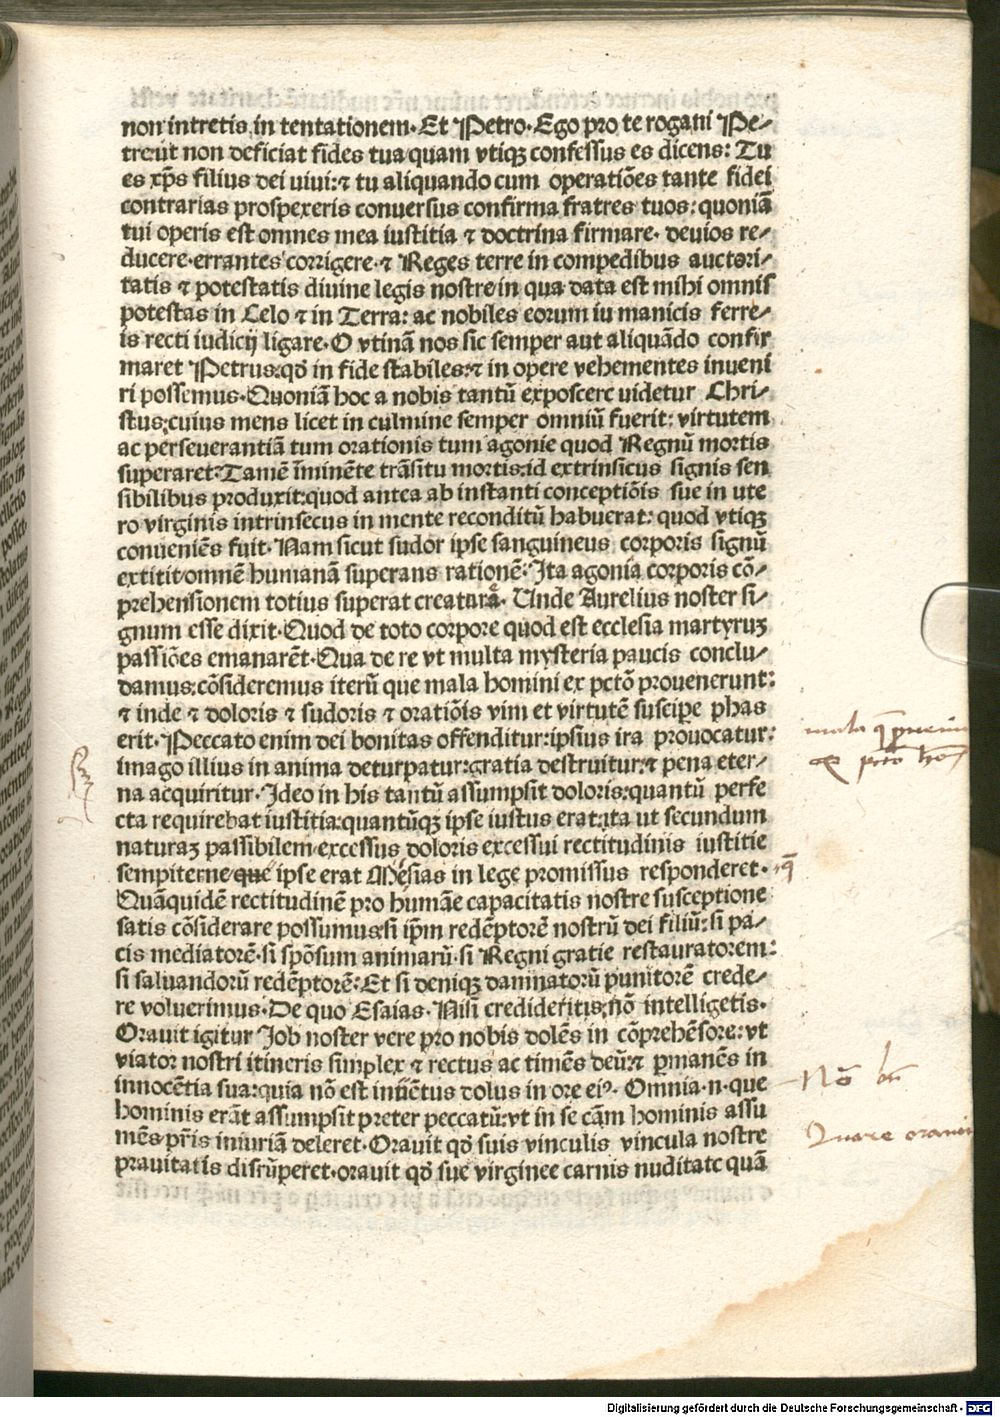 non intretis in tentationem. Et Petro. Ego pro te rogaui Pe⸗
tre:ut non deficiat fides tua quam vtiqꝫ confessus es dicens: Tu
es xp̄s filius dei uiui:⁊ tu aliquando cum operatiōes tante fidei
contrarias prospexeris conuersus confirma fratres tuos: quoniā
tui operis est omnes mea iustitia ⁊ doctrina firmare. deuios re⸗
ducere.errantes corrigere.⁊ Reges terre in compedibus auctori⸗
tatis ⁊ potestatis diuine legis nostre in qua data est mihi omnis
potestas in Celo ⁊ in Terra: ac nobiles eorum iu manicis ferre⸗
is recti iudicij ligare. O vtinā nos sic semper aut aliquādo confir
maret Petrus:qđ in fide stabiles:⁊ in opere vehementes inueni
ri possemus. Quoniā hoc a nobis tantū exposcere uidetur Chri⸗
stus:cuius mens licet in culmine semper omniū fuerit: virtutem
ac perseuerantiā tum orationis tum agonie quod Regnū mortis
superaret. Tamē īminēte trāsitu mortis:id extrinsicus signis sen
sibilibus produxit:quod antea ab instanti conceptiōis sue in ute
ro virginis intrinsecus in mente reconditū habuerat: quod vtiqꝫ
conueniēs fuit. Nam sicut sudor ipse sanguineus corporis signū
extitit omnē humanā superans rationē: Ita agonia corporis cō⸗
prehensionem totius superat creaturā. Unde Aurelius noster si⸗
gnum esse dixit. Quod de toto corpore quod est ecclesia martyruꝫ
passiōes emanarēt. Qua de re vt multa mysteria paucis conclu⸗
damus:cōsideremus iterū que mala homini ex pctō prouenerunt:
⁊ inde ⁊ doloris ⁊ sudoris ⁊ oratiōis vim et virtutē suscipe phas
erit. Peccato enim dei bonitas offenditur:ipsius ira prouocatur:
imago illius in anima deturpatur:gratia destruitur:⁊ pena eter⸗
na acquiritur. Ideo in his tantū assumpsit doloris:quantū perfe
cta requirebat iustitia:quantūqꝫ ipse iustus erat:ita ut secundum
naturaꝫ passibilem excessus doloris excessui rectitudinis iustitie
sempiterne que ipse erat Mesias in lege promissus responderet.
Quāquidē rectitudinē pro humāe capacitatis nostre susceptione
satis cōsiderare possumus:si ip̄m redēptorē nostrū dei filiū: si pa⸗
cis mediatorē.si spōsum animarū.si Regni gratie restauratorem:
si saluandorū redēptorē: Et si denique damnatorū punitorē crede⸗
re voluerimus. De quo Esaias. Nisi credideritis,nō intelligetis.
Orauit igitur Job noster vere pro nobis dolēs in cōprehēsore: vt
viator nostri itineris simplex ⁊ rectus ac timēs deū:⁊ ꝑmanēs in
innocētia sua:quia nō est inuētus dolus in ore eiꝰ. Omnia .n. que
hominis erāt assumpsit preter peccatū:vt in se cām hominis assu
mēs pr̄is iniuriā deleret. Orauit qđ suis vinculis vincula nostre
prauitatis disrūperet.orauit qđ sue virginee carnis nuditate quā
Nō
Quare orauit
Digitalisierung gefördert durch die Deutsche Forschungsgemeinschaft - DFG